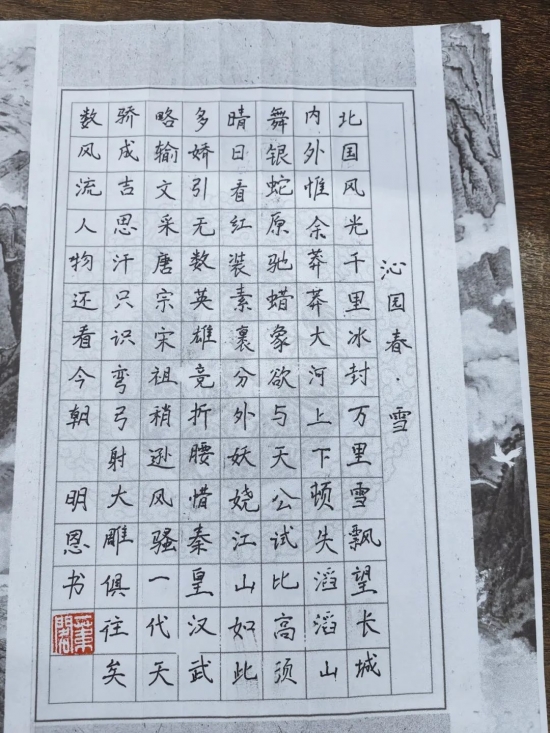 沁园春·雪
北国风光千里冰封万里雪飘望长城
内外惟余莽莽大河上下顿失滔滔山
舞银蛇原驰蜡象欲与天公试比高须
晴日看红装素裹分外妖娆江山如此
多娇引无数英雄竞折腰惜秦皇汉武
略输文采唐宗宋祖稍逊风骚一代天
骄成吉思汗只识弯弓射大雕俱往矣
数风流人物还看今朝 明恩书